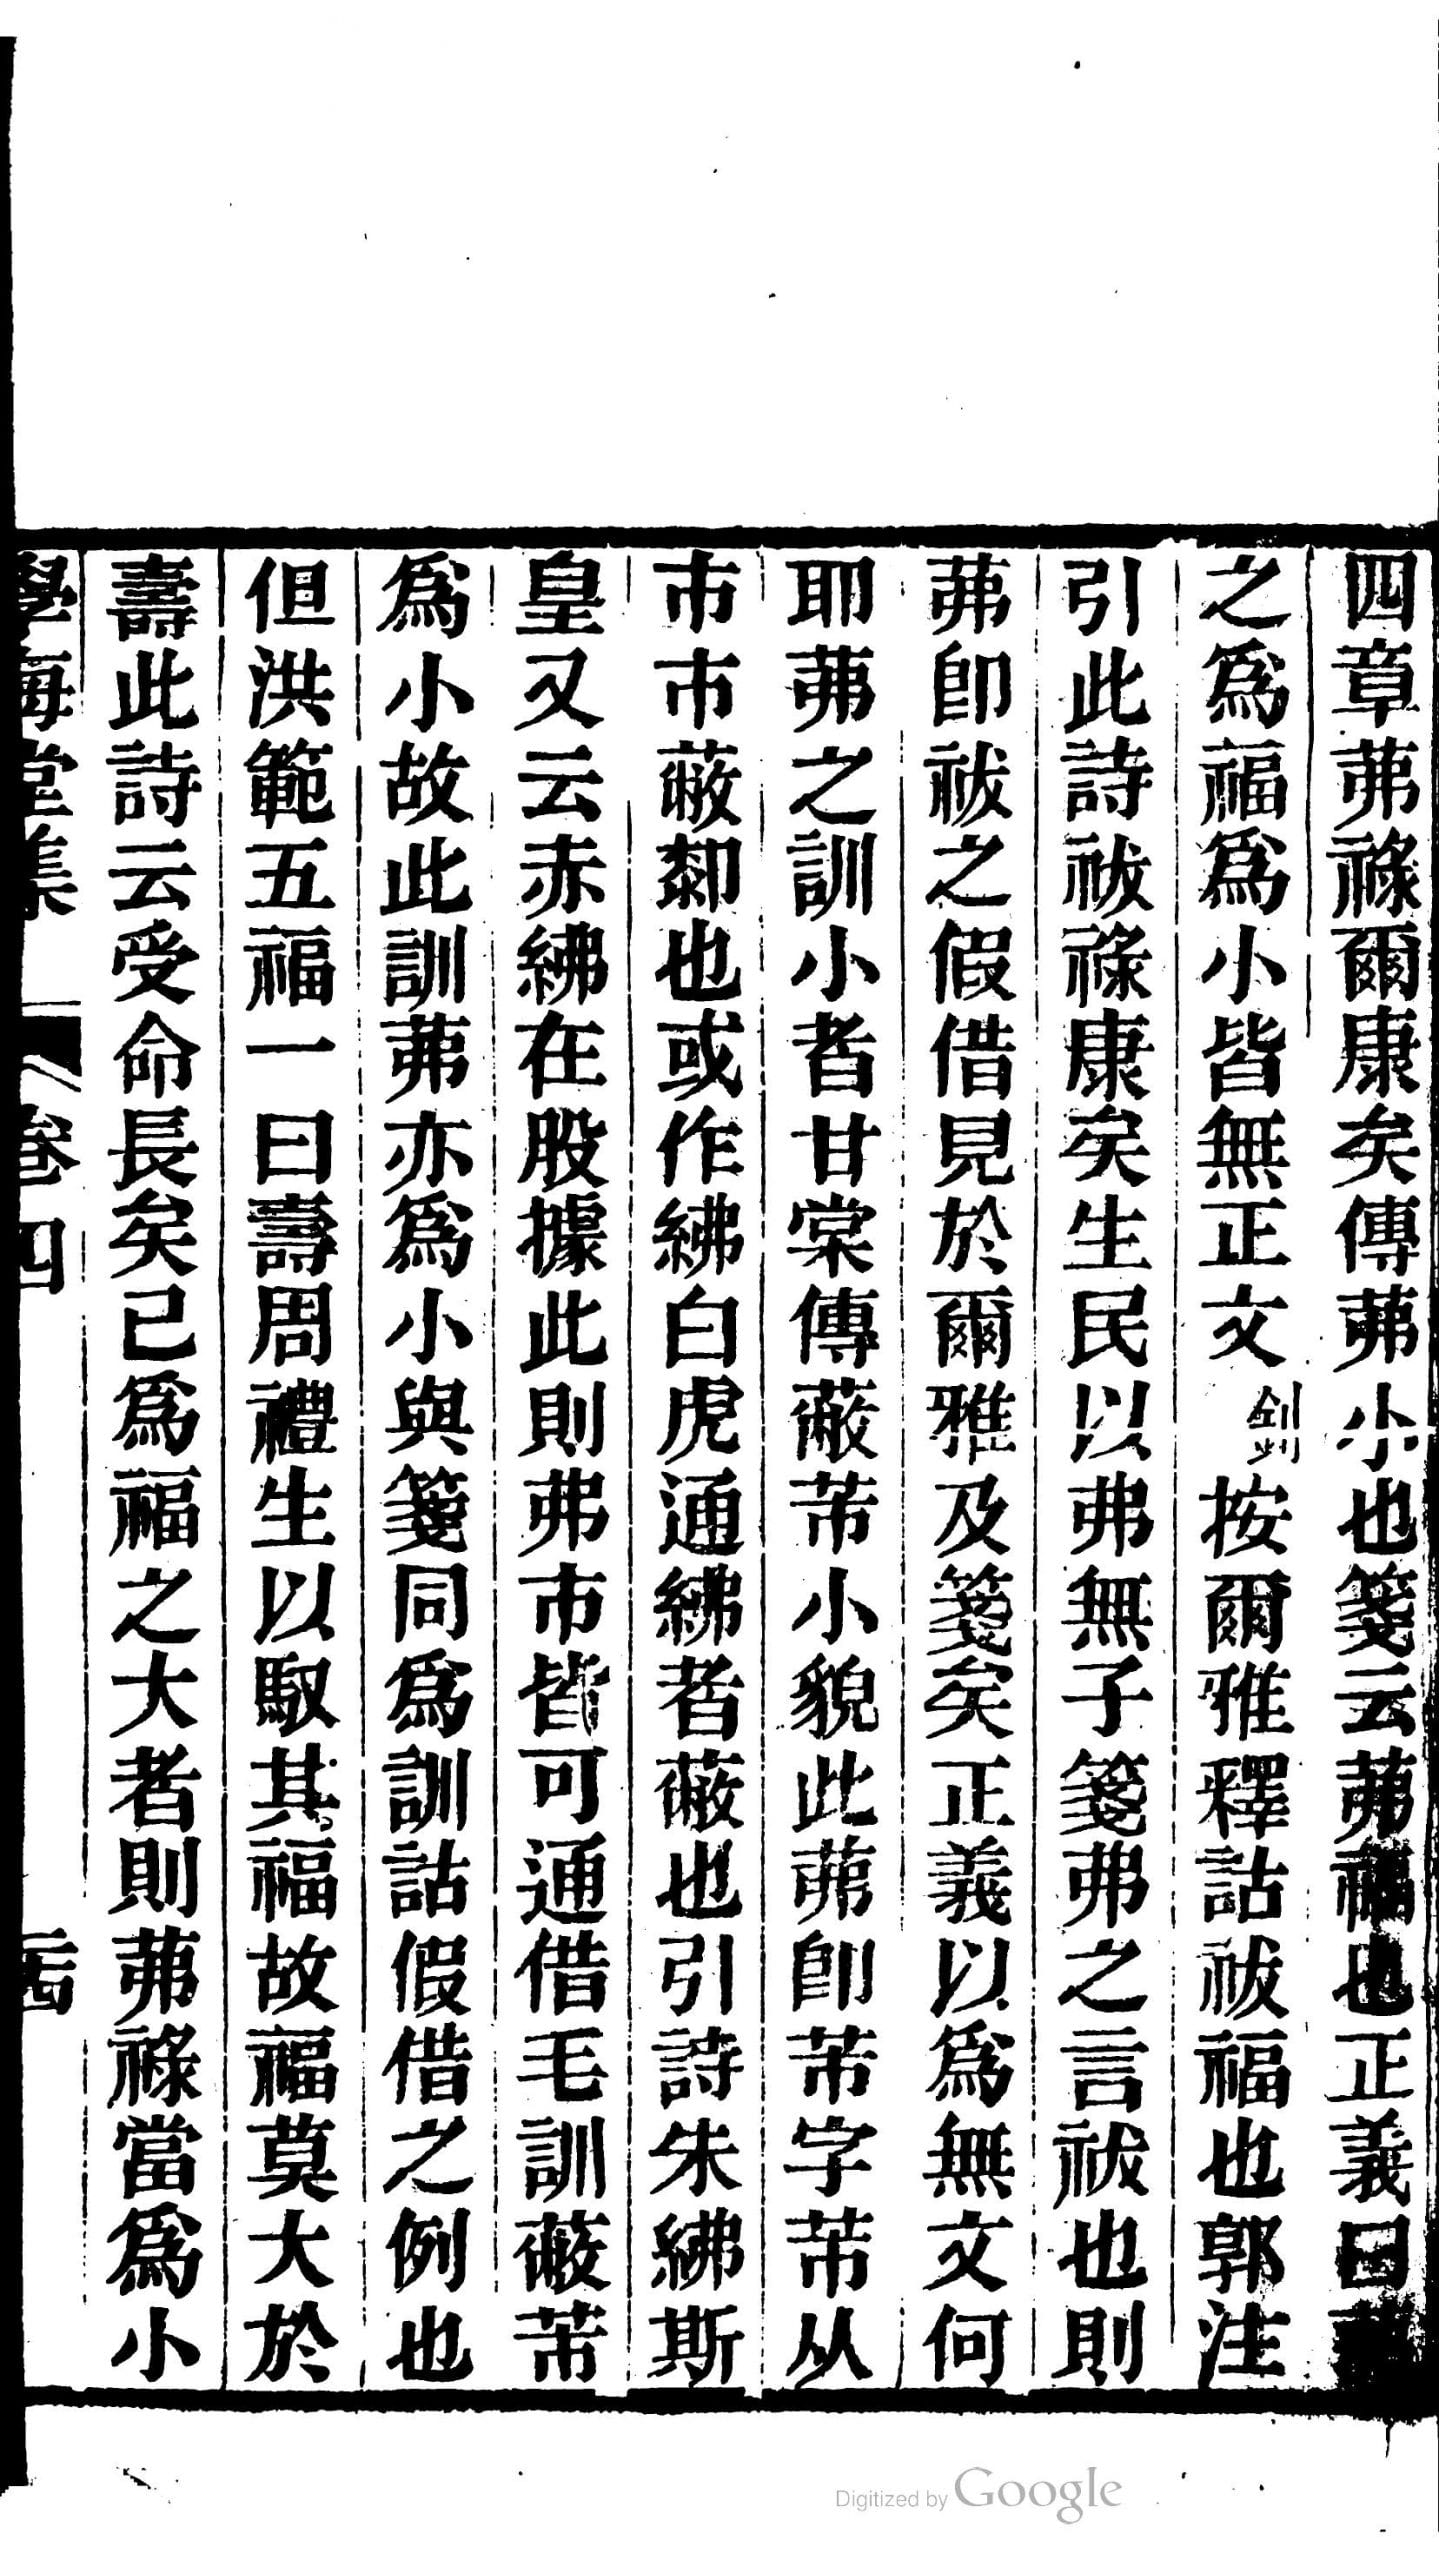 四章茀祿爾康矣傳茀小也箋云茀福也正義曰茀
之爲福爲小皆無正文釗按爾雅釋詁祓福也郭注
引此詩祓祿康矣生民以弗無子箋弗之言祓也則
茀卽祓之假借見於爾雅及箋矣正義以爲無文何
耶茀之訓小者甘棠傳蔽芾小貌此茀卽芾字芾从
巿巿蔽厀也或作紼白虎通紼者蔽也引詩朱紼斯
皇又云赤紼在股據此則弗巿皆可通借毛訓蔽芾
爲小故此訓茀亦爲小與箋同爲訓詁假借之例也
但洪範五福一曰壽周禮生以馭其福故福莫大於
壽此詩云受命長矣已爲福之大者則茀祿當爲小
學海堂集 卷四
Digitized by Google